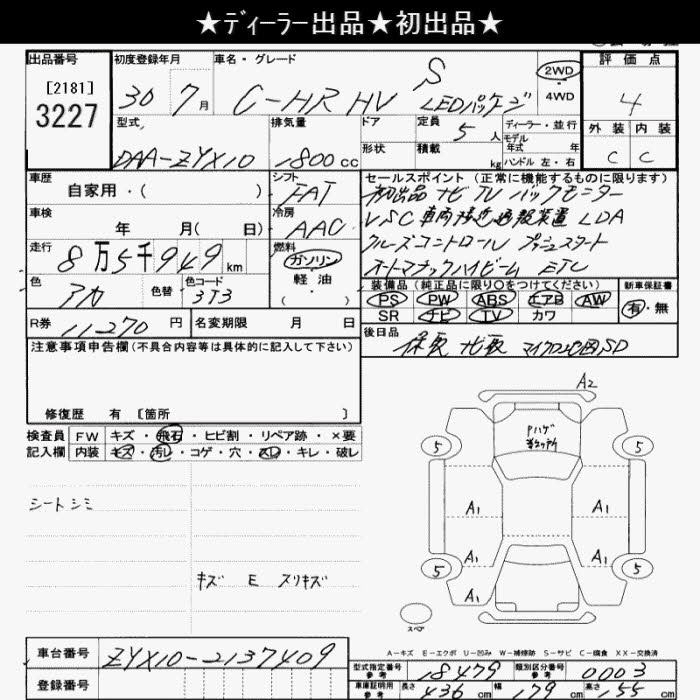 ★ディーラー出品★初出品★
出品番号
[2181]
3227
初度登録年月
30 7月
車名・グレード
C-HR HV S LEDパッケージ
2WD
・
4WD
評価点
4
外装 内装
C C
型式
DAA-ZYX10
排気量
1800cc
ドア
形状
定員
5人
積載
kg
ディーラー・並行
モデル
年式 年
ハンドル 左・右
車歴
自家用・( )
シフト
FAT
車検
年 月( 日)
冷房
AAC
走行
8万5千949km
燃料
ガソリン
・
軽油
・
( )
色
アカ
色替
色コード
3T3
R券
11-270円
名変期限 月 日
セールスポイント(正常に機能するものに限ります)
初出品 ナビ TV バックモニター
VSC 車両接近通報装置 LDA
クルーズコントロール プッシュスタート
オートマチックハイビーム ETC
装備品(純正品に限り○をつけてください)
PS PW ABS エアB AW
SR ナビ TV カワ
新車保証書
有・無
後日品
保取 ナビ取 SD
注意事項申告欄(不具合内容等は具体的に記入して下さい)
修復歴 有 〔箇所 〕
検査員 FW キズ・飛石・ヒビ割・リペア跡・×要
記入欄 内装 キズ・汚レ・コゲ・穴・スレ・キレ・破レ
シートシミ
キズ E スリキズ
A2
Pハゲ
5 5
A1 A1
A1 A1
5 5
スペア
A-キズ E-エクボ U-凹み W-補修跡 S-サビ C-腐食 XX-交換済
車台番号
ZYX10-2137409
登録番号
型式指定番号
参考
18479
類別区分番号
参考
0003
車庫証明用
参考
長さ 436cm 幅 179cm 高さ 155cm